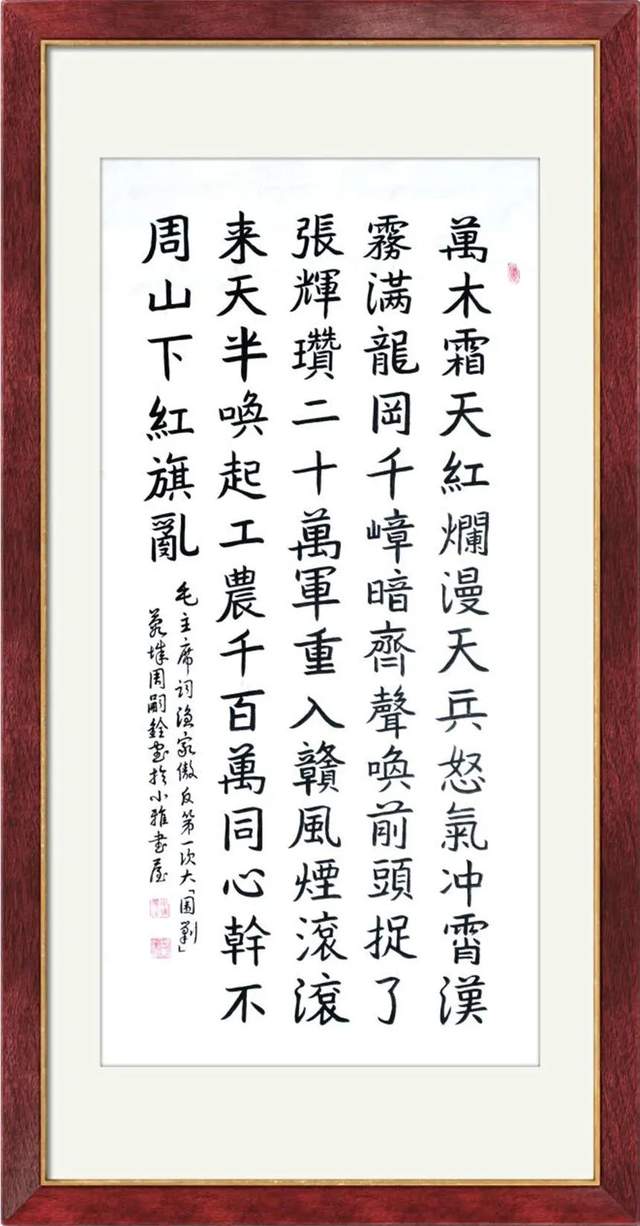 萬木霜天紅爛漫天兵怒氣冲霄漢
霧满龍岡千嶂暗齊聲喚前頭捉了
張輝瓚二十萬軍重入贛風煙滾滾
来天半喚起工農千百萬同心幹不
周山下紅旗亂
毛主席词渔家傲反第一次大「圍剿」
城周嗣銓書於小雅書屋